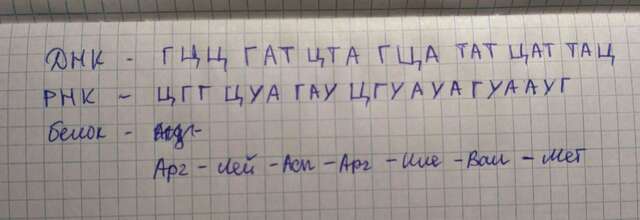 ДНК - ГЦЦ ГАТ ЦТА ГЦА ТАТ ЦАТ ТАЦ
РНК - ЦГГ ЦУА ГАУ ЦГУАУАГУААУГ
белок -
Арг - Лей - Асп - Арг - Иле - Вал - Мет